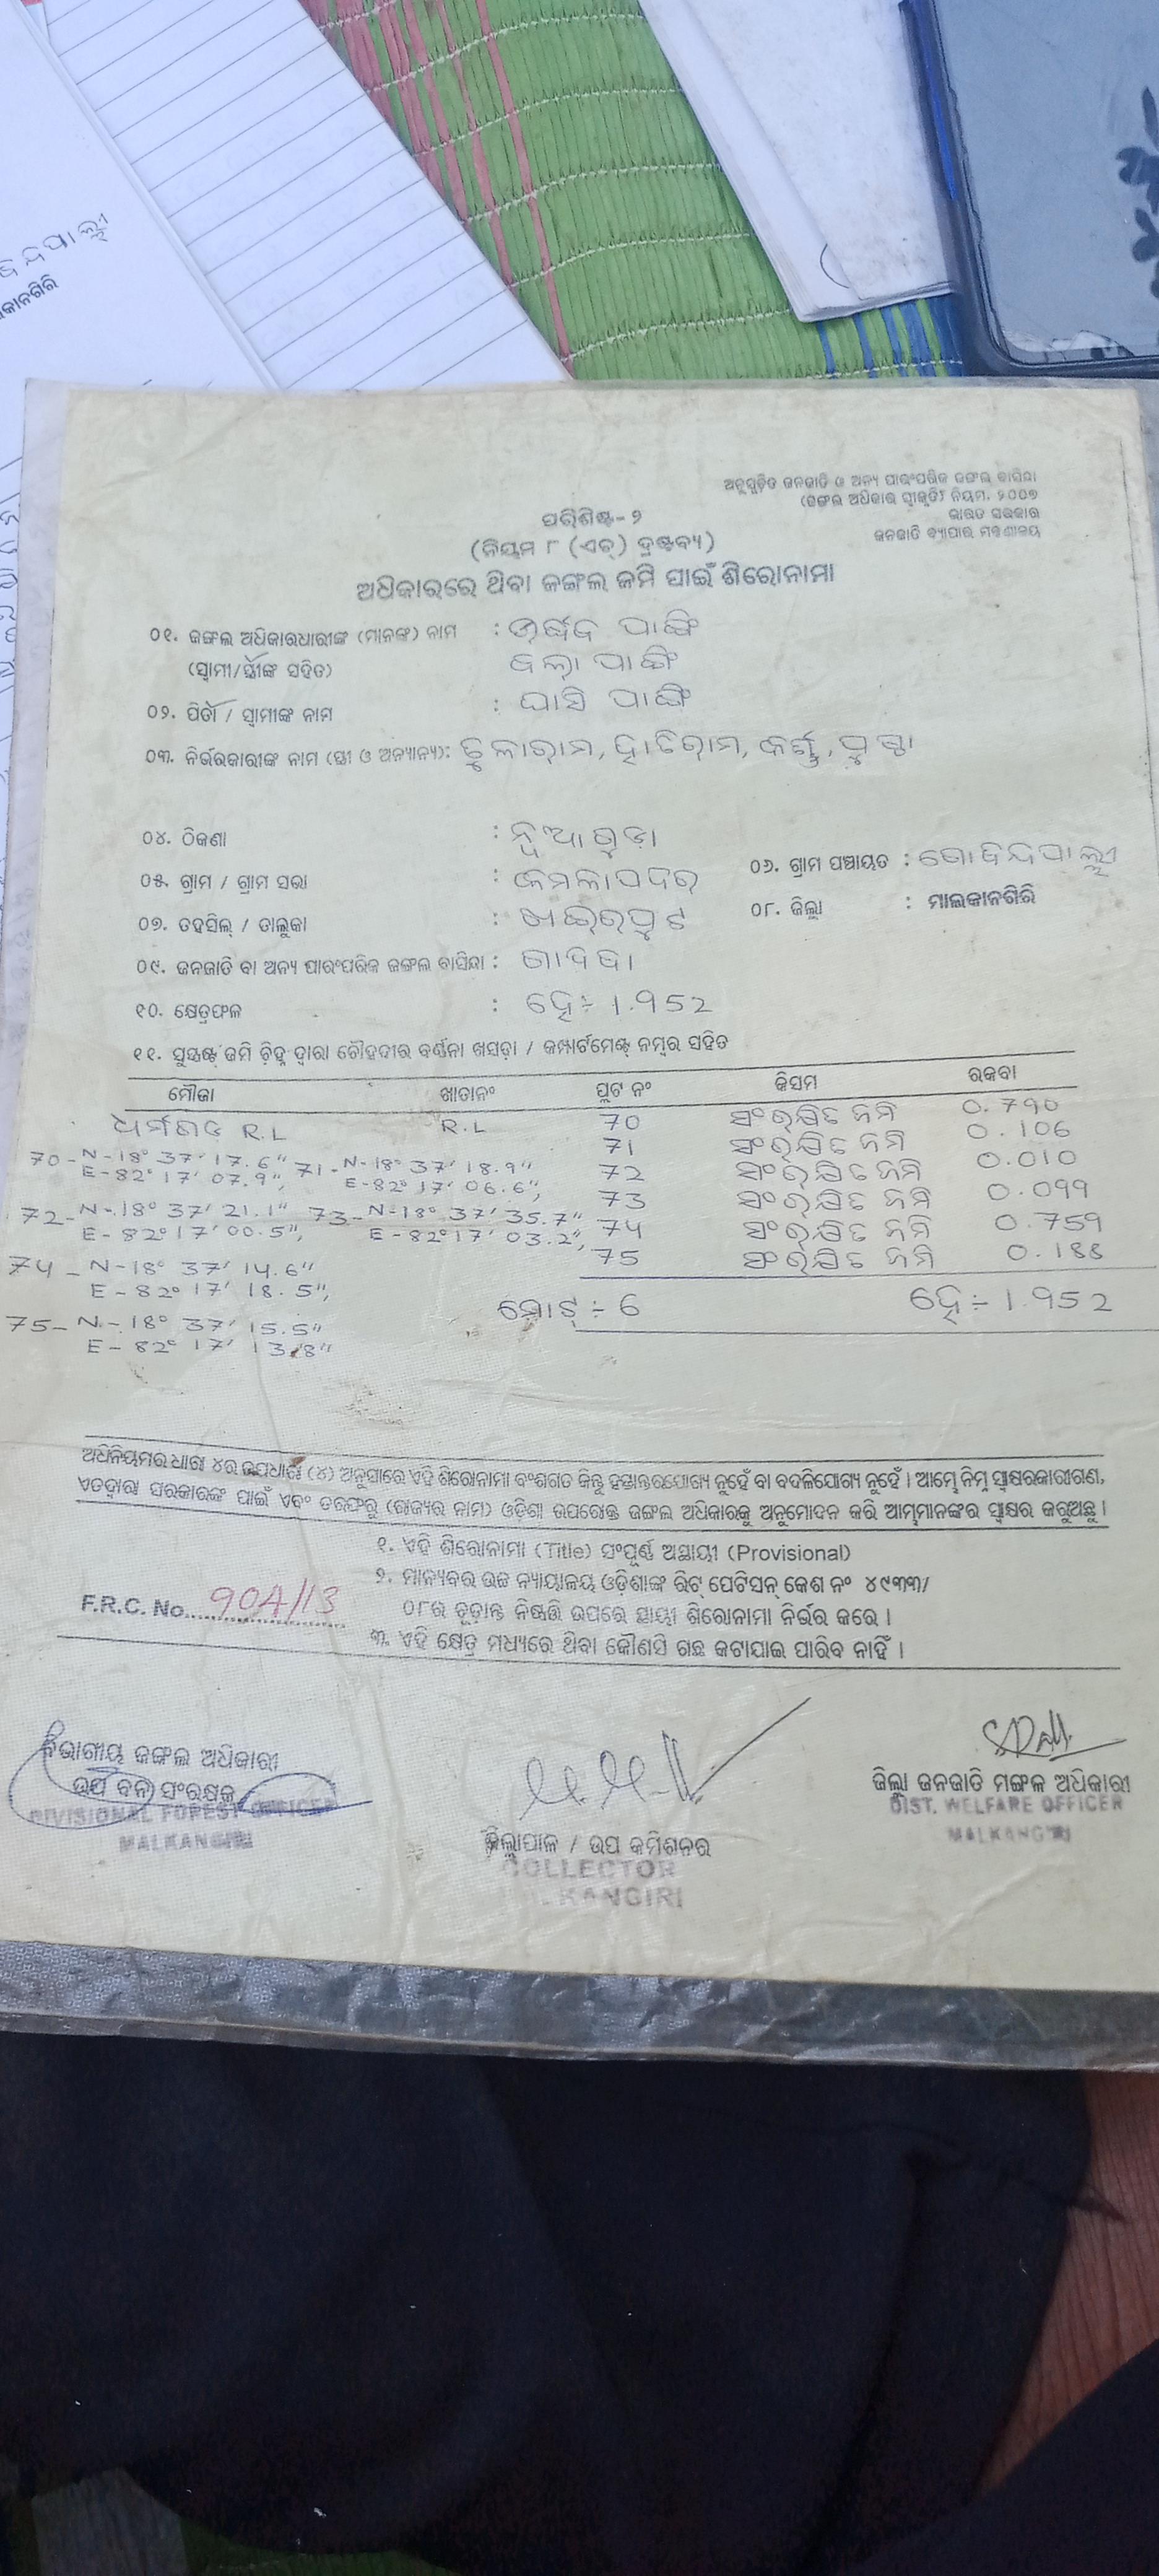 ନ୍ଦିପାଲ୍ଲୀ
କାନଗିରି
ଅନୁସୂଚିତ ଜନଜାତି ଓ ଅନ୍ୟ ପାରଂପରିକ ଜଙ୍ଗଲ ବାସିନ୍ଦା
(ଜଙ୍ଗଲ ଅଧିକାର ସ୍ୱୀକୃତି) ନିୟମ, ୨୦୦୭
ଭାରତ ସରକାର
ଜନଜାତି ବ୍ୟାପାର ମନ୍ତ୍ରଣାଳୟ
ପରିଶିଷ୍ଟ-୨
(ନିୟମ ୮ (ଏଚ୍) ଦ୍ରଷ୍ଟବ୍ୟ)
ଅଧିକାରରେ ଥିବା ଜଙ୍ଗଲ ଜମି ପାଇଁ ଶିରୋନାମା
୦୧. ଜଙ୍ଗଲ ଅଧିକାରଧାରୀଙ୍କ (ମାନଙ୍କ) ନାମ : ପାଙ୍ଗି
(ସ୍ୱାମୀ/ସ୍ତ୍ରୀଙ୍କ ସହିତ) ପାଙ୍ଗି
୦୨. ପିତା / ସ୍ୱାମୀଙ୍କ ନାମ : ଘାସି ପାଙ୍ଗି
୦୩. ନିର୍ଭରକାରୀଙ୍କ ନାମ (ସ୍ତ୍ରୀ ଓ ଅନ୍ୟାନ୍ୟ): ତୁଳାରାମ,
୦୪. ଠିକଣା : ନୂଆଗୁଡ଼ା
୦୫. ଗ୍ରାମ / ଗ୍ରାମ ସଭା : କମଳାପଦର ୦୬. ଗ୍ରାମ ପଞ୍ଚାୟତ : ଗୋବିନ୍ଦପାଲ୍ଲୀ
୦୭. ତହସିଲ୍ / ତାଲୁକା : ଖଇରପୁଟ ୦୮. ଜିଲ୍ଲା : ମାଲକାନଗିରି
୦୯. ଜନଜାତି ବା ଅନ୍ୟ ପାରଂପରିକ ଜଙ୍ଗଲ ବାସିନ୍ଦା : ଗାଦବା
୧୦. କ୍ଷେତ୍ରଫଳ : ହେ÷ 1.952
୧୧. ସୁସ୍ପଷ୍ଟ ଜମି ଚିହ୍ନ ଦ୍ୱାରା ଚୌହଦୀର ବର୍ଣ୍ଣନା ଖସଡ଼ା / କମ୍ପାର୍ଟମେଣ୍ଟ ନମ୍ବର ସହିତ
ମୌଜା ଖାତାନଂ ପ୍ଲଟ ନଂ କିସମ ରକବା
ଧର୍ମଗଡ R.L R.L 70 ସଂରକ୍ଷିତ ଜମି 0.790
71 ସଂରକ୍ଷିତ ଜମି 0.106
70- N-18° 37' 17.6" 71- N-18° 37' 18.9" 72 ସଂରକ୍ଷିତ ଜମି 0.010
E-82° 17' 07.9", E-82° 17' 06.6", 73 ସଂରକ୍ଷିତ ଜମି 0.099
72- N-18° 37' 21.1" 73- N-18° 37' 35.7" 74 ସଂରକ୍ଷିତ ଜମି 0.759
E-82° 17' 00.5", E-82° 17' 03.2", 75 ସଂରକ୍ଷିତ ଜମି 0.188
74- N-18° 37' 14.6"
E-82° 17' 18.5",
ମୋଟ୍ ÷ 6 ହେ÷ 1.952
75- N-18° 37' 15.5"
E-82° 17' 13.8"
ଅଧିନିୟମର ଧାରା ୪ର ଉପଧାରା (୪) ଅନୁସାରେ ଏହି ଶିରୋନାମା ବଂଶଗତ କିନ୍ତୁ ହସ୍ତାନ୍ତରଯୋଗ୍ୟ ନୁହେଁ ବା ବଦଳିଯୋଗ୍ୟ ନୁହେଁ । ଆମ୍ଭେ ନିମ୍ନ ସ୍ୱାକ୍ଷରକାରୀଗଣ,
ଏତଦ୍ୱାରା ସରକାରଙ୍କ ପାଇଁ ଏବଂ ତରଫରୁ (ରାଜ୍ୟର ନାମ) ଓଡ଼ିଶା ଉପରୋକ୍ତ ଜଙ୍ଗଲ ଅଧିକାରକୁ ଅନୁମୋଦନ କରି ଆମ୍ଭମାନଙ୍କର ସ୍ୱାକ୍ଷର କରୁଅଛୁ ।
୧. ଏହି ଶିରୋନାମା (Title) ସଂପୂର୍ଣ୍ଣ ଅସ୍ଥାୟୀ (Provisional)
୨. ମାନ୍ୟବର ଉଚ୍ଚ ନ୍ୟାୟାଳୟ ଓଡ଼ିଶାଙ୍କ ରିଟ୍ ପେଟିସନ୍ କେଶ ନଂ ୪୯୩୩/
F.R.C. No. 904/13 ୦୮ର ଚୂଡ଼ାନ୍ତ ନିଷ୍ପତ୍ତି ଉପରେ ସ୍ଥାୟୀ ଶିରୋନାମା ନିର୍ଭର କରେ ।
୩. ଏହି କ୍ଷେତ୍ର ମଧ୍ୟରେ ଥିବା କୌଣସି ଗଛ କଟାଯାଇ ପାରିବ ନାହିଁ ।
ବିଭାଗୀୟ ଜଙ୍ଗଲ ଅଧିକାରୀ
ଉପ ବନ ସଂରକ୍ଷକ
DIVISIONAL FOREST OFFICER
MALKANGIRI
ଜିଲ୍ଲାପାଳ / ଉପ କମିଶନର
COLLECTOR
MALKANGIRI
ଜିଲ୍ଲା ଜନଜାତି ମଙ୍ଗଳ ଅଧିକାରୀ
DIST. WELFARE OFFICER
MALKANGIRI